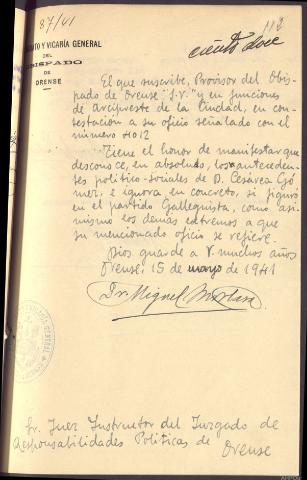 87/41
112
ciento doce
VICARÍA GENERAL
DEL
OBISPADO
DE
ORENSE
El que suscribe, Provisor del Obis-
pado de Orense "S.V." y en funciones
de arcipreste de la Ciudad, en con-
testación a su oficio señalado con el
número 4012
Tiene el honor de manifestar que
desconoce, en absoluto, los anteceden-
tes político-sociales de D. Cesárea Gó
mez, e ignora, en concreto, si figuró
en el partido Galleguista, como asi-
mismo los demás extremos a que
su mencionado oficio se refiere.
Dios guarde a V. muchos años
Orense, 15 de mayo de 1941
Dr. Miguel
Sr. Juez Instructor del Juzgado de
Responsabilidades Políticas de Orense